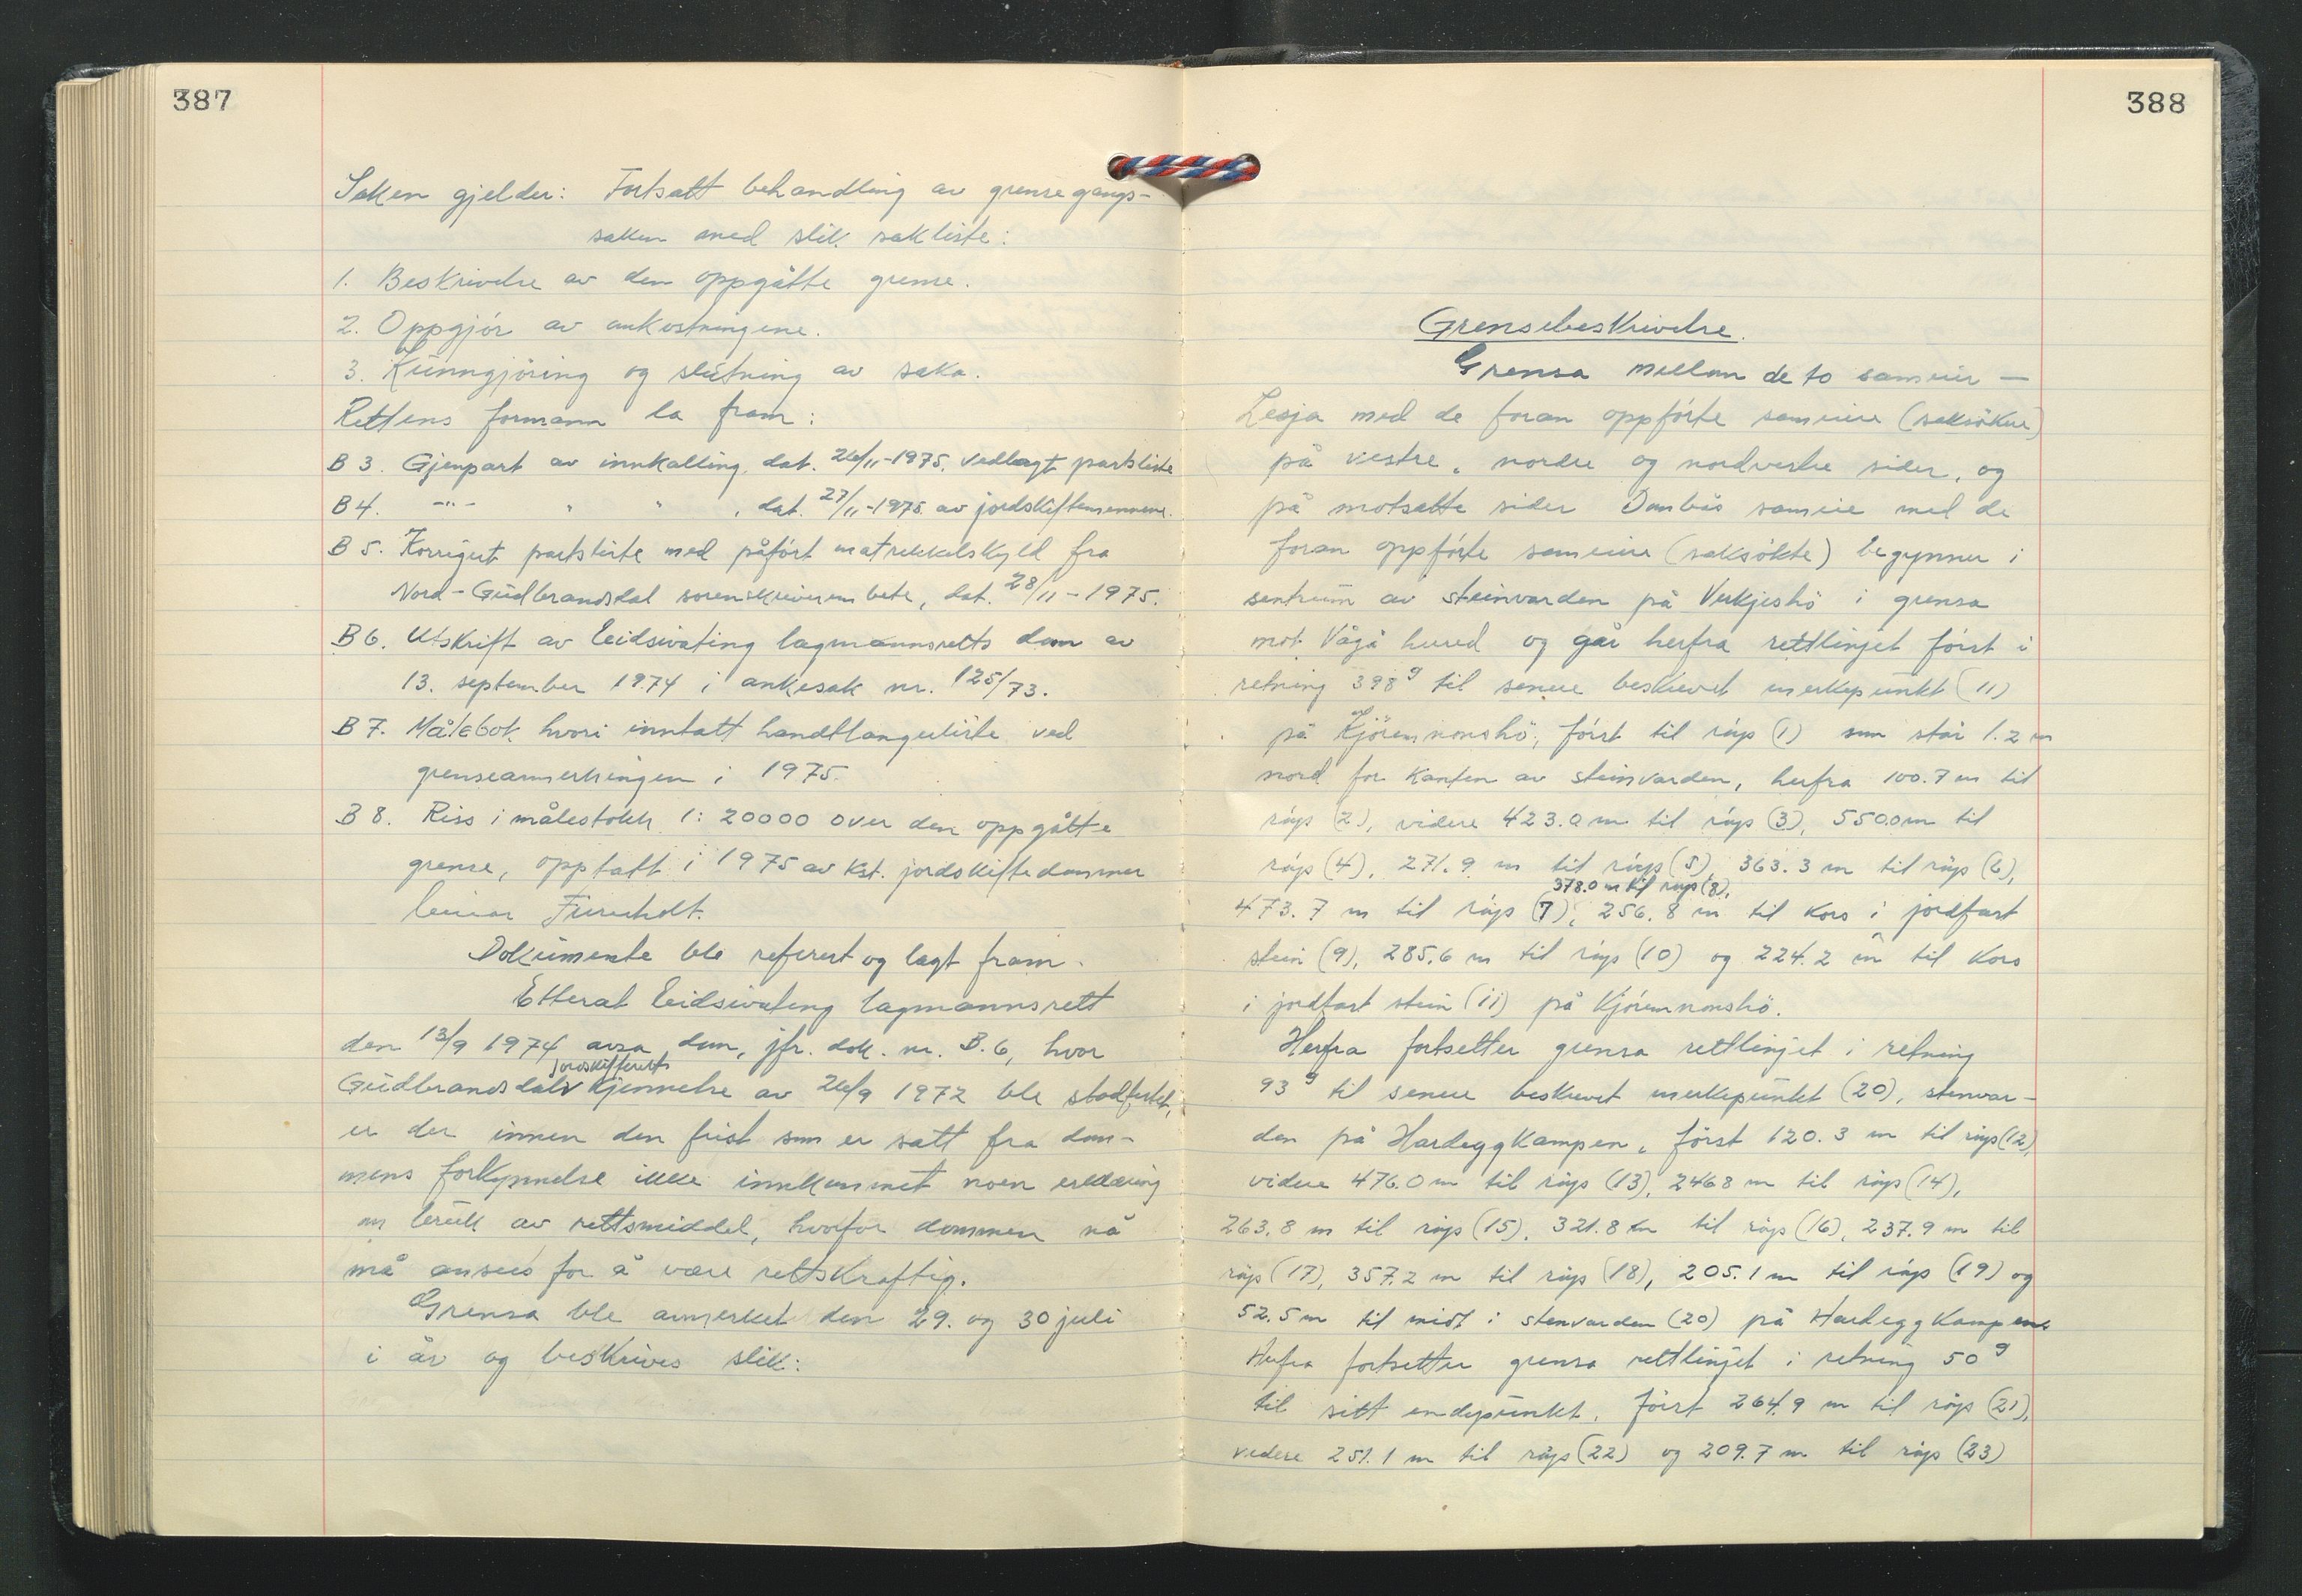 387
Saken gjelder: Fortsatt behandling av grensegangs-
saken med slik sakliste:
1. Beskrivelse av den oppgåtte grense.
2. Oppgjör av omkostningene.
3. Kunngjöring og slutning av saka.
Rettens formann la fram:
B 3. Gjenpart av innkalling, dat. 26/11-1975, vedlagt partsliste
B 4. -"- " " , dat. 27/11-1975 av jordskiftemennene.
B 5. Korrigert partsliste med påfört matrikkelskyld fra
Nord-Gudbrandsdal sorenskriverembete, dat. 28/11-1975.
B 6. Utskrift av Eidsivating lagmannsretts dom av
13. september 1974 i ankesak nr. 125/73.
B 7. Målebok hvori inntatt handtlangerliste ved
grenseavmerkingen i 1975.
B 8. Riss i målestokk 1: 20000 over den oppgåtte
grense, opptatt i 1975 av kst. jordskiftedommer
Einar Furuholt.
Dokumente ble referert og lagt fram.
Etterat Eidsivating lagmannsrett
den 13/9 1974 avsa dom, jfr. dok. nr. B.6, hvor
jordskifteretts
Gudbrandsdal v kjennelse av 26/9 1972 ble stadfestet,
er der innen den frist som er satt fra dom-
mens forkynnelse ikke innkommet noen erklæring
om bruk av rettsmiddel, hvorfor dommen nå
må ansees for å være rettskraftig.
Grensa ble avmerket den 29. og 30 juli
i år og beskrives slik:
388
Grensebeskrivelse.
Grensa mellom de to sameier —
Lesja med de foran oppförte sameiere (saksökere)
på vestre, nordre og nordvestre sider, og
på motsatte sider Dombås sameie med de
foran oppförte sameiere (saksökte) begynner i
sentrum av steinvarden på Verkjeshö i grensa
mot Vågå herred og går herfra rettlinjet först i
retning 398 g til senere beskrevet merkepunkt (11)
på Kjöremnomshö, först til röys (1) som står 1.2 m
nord for kanten av steinvarden, herfra 100.7 m til
röys (2), videre 423.0 m til röys (3), 550.0 m til
röys (4), 271.9 m til röys (5), 363.3 m til röys (6),
378.0 m til röys (8),
473.7 m til röys (7), 256.8 m til kors i jordfast
stein (9), 285.6 m til röys (10) og 224.2 m til kors
i jordfast stein (11) på Kjöremnomshö.
Herfra fortsetter grensa rettlinjet i retning
93 g til senere beskrevet merkepunkt (20), stenvar-
den på Hardeggkampen, först 120.3 m til röys (12),
videre 476.0 m til röys (13), 246.8 m til röys (14),
263.8 m til röys (15), 321.8 m til röys (16), 237.9 m til
röys (17), 357.2 m til röys (18), 205.1 m til röys (19) og
52.5 m til midt i stenvarden (20) på Hardeggkampen.
Herfra fortsetter grensa rettlinjet i retning 50 g
til sitt endepunkt, först 264.9 m til röys (21),
videre 251.1 m til röys (22) og 209.7 m til röys (23)